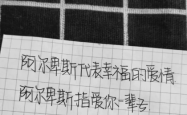 阿尔卑斯代表幸福的爱情
阿尔卑斯指爱你一辈子